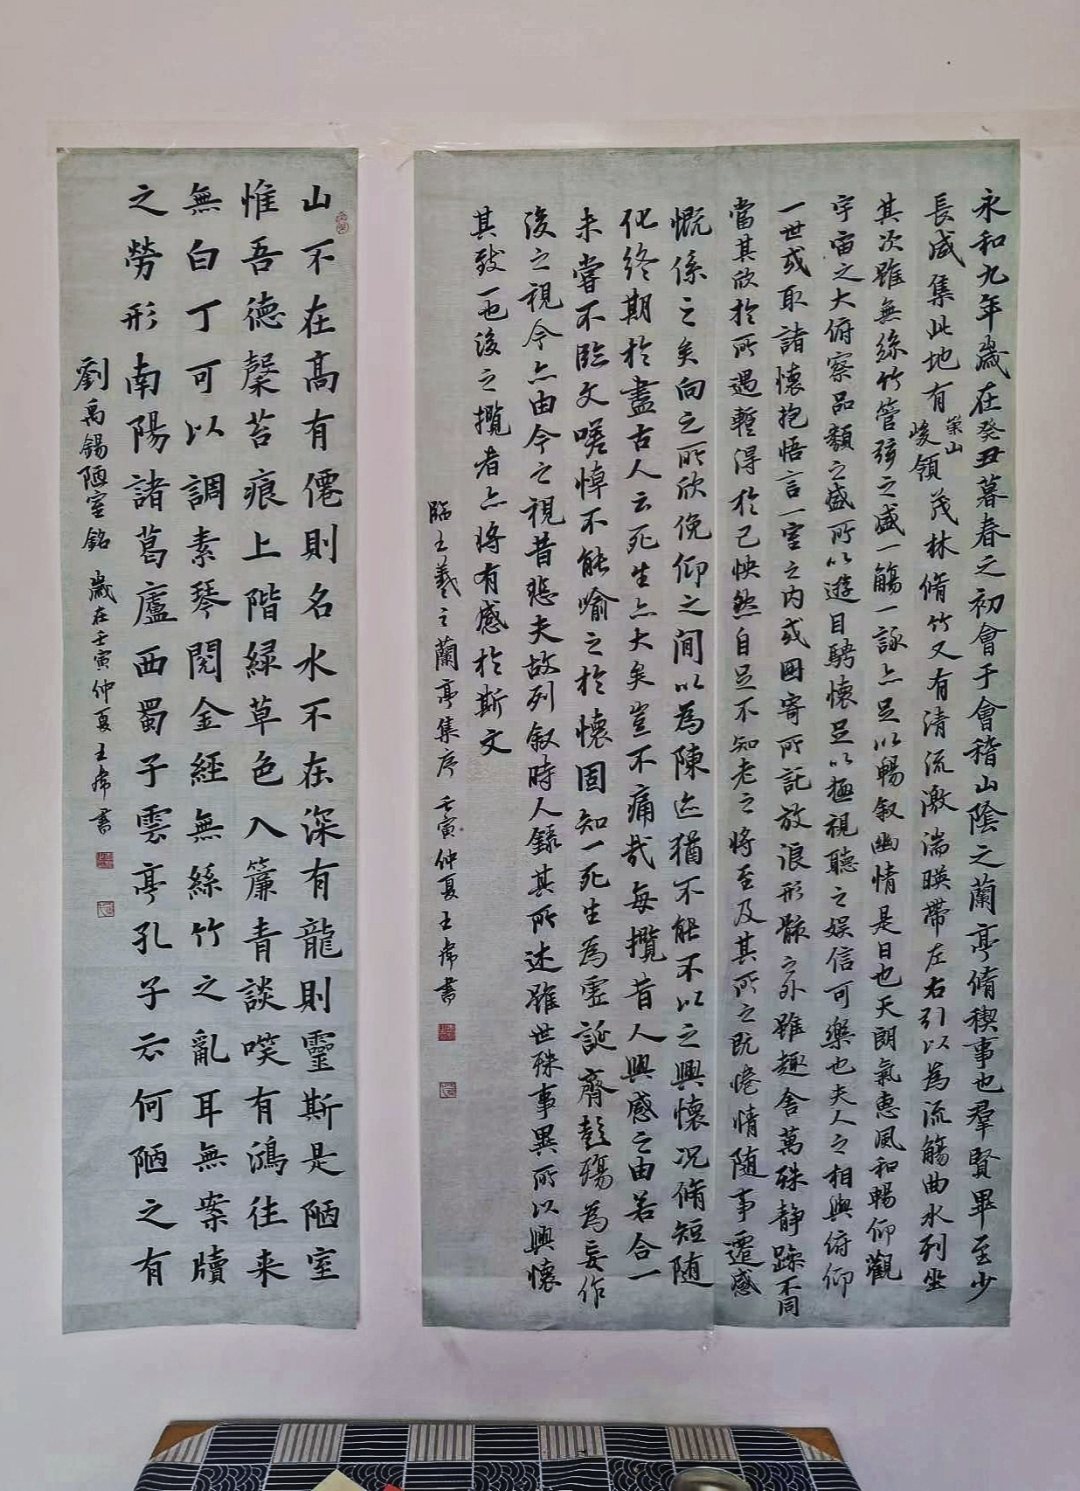 永和九年歲在癸丑暮春之初會于會稽山陰之蘭亭脩稧事也羣賢畢至少
長咸集此地有崇山峻領茂林脩竹又有清流激湍暎帶左右引以為流觴曲水列坐
其次雖無絲竹管弦之盛一觴一詠亦足以暢叙幽情是日也天朗氣惠風和暢仰觀
宇宙之大俯察品類之盛所以遊目騁懷足以極視聽之娛信可樂也夫人之相與俯仰
一世或取諸懷抱悟言一室之內或因寄所託放浪形骸之外雖趣舍萬殊静躁不同
當其欣於所遇蹔得於己怏然自足不知老之將至及其所之既惓情隨事遷感
慨係之矣向之所欣俛仰之間以為陳迹猶不能不以之興懷况脩短随
化終期於盡古人云死生亦大矣豈不痛哉每攬昔人興感之由若合一
未嘗不臨文嗟悼不能喻之於懷固知一死生為虛誕齊彭殤為妄作
後之視今亦由今之視昔悲夫故列叙時人錄其所述雖世殊事異所以興懷
其致一也後之攬者亦將有感於斯文
臨王羲之蘭亭集序 壬寅仲夏王書
山不在高有僊則名水不在深有龍則靈斯是陋室
惟吾德馨苔痕上階緑草色入簾青談笑有鴻往来
無白丁可以調素琴閱金經無絲竹之亂耳無案牘
之勞形南陽諸葛廬西蜀子雲亭孔子云何陋之有
劉禹錫陋室銘 歲在壬寅仲夏王書